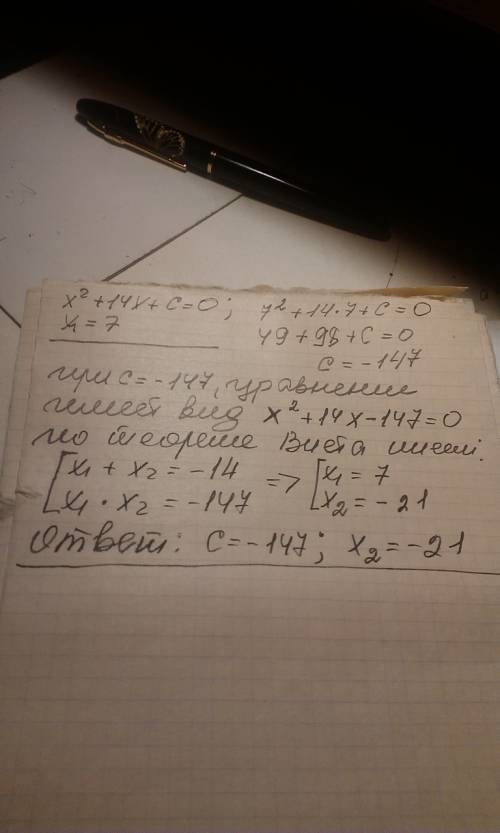 x² + 14x + c = 0 ; 7² + 14·7 + c = 0
x₁ = 7 49 + 98 + c = 0
c = -147
при c = -147, уравнение
имеет вид x² + 14x - 147 = 0
по теореме Виета имеем:
[ x₁ + x₂ = -14 => [ x₁ = 7
x₁ · x₂ = -147 x₂ = -21
Ответ: c = -147 ; x₂ = -21